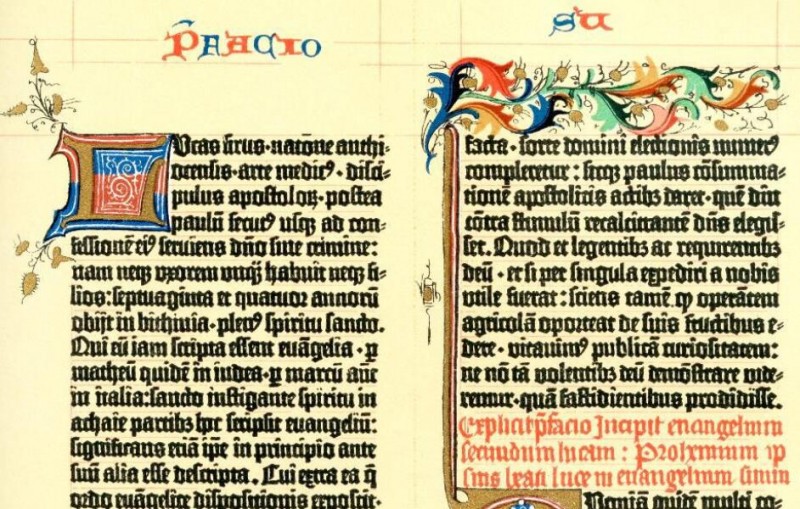 P̃FACIO
SU
Lucas sirus·natōne anthi-
ocensis·arte medicꝰ·disci-
pulus apostoloꝝ·postea
paulū secutꝰ usqꝫ ad con-
fessionē eiꝰ serviens dño sine crimine:
nam neqꝫ uxorem unqȝ habuit neqꝫ fi-
lios: septuaginta et quatuor annorū
obijt in bithinia·plenꝰ spiritu sancto.
Qui cū iam scripta essent euāgelia·ꝑ
matheū quidē in iudea·ꝑ marcū aūt
in italia: sancto instigante spiritu in
achaie partibꝫ hoc scripsit euangeliū:
significans etiā ip̄e in principio ante
suū alia esse descripta. Cui extra ea q̄
ordo euāgelice dispositionis exposcit·
facta·sorte domini electionis numerꝰ
compleretur: sicqꝫ paulus cōsumma-
tionē apostolicis actibꝫ daret·quē diu
cōtra stimulū recalcitrantē dñs elegis-
set. Quod et legentibꝫ ac requirentibꝫ
deū·et si per singula expediri a nobis
utile fuerat: sciens tamē ꝙ operātem
agricolā oporteat de suis fructibus e-
dere·vitauimꝰ publicā curiositatem:
ne nō tā volentibꝫ deū demōstrare vide-
remur·quā fastidientibus prodidisse.
Explicit p̄facio Incipit euangelium
secundum lucam: Prohemium ip
sius beati luce in euangelium suum
Quoniam quidē multi co-